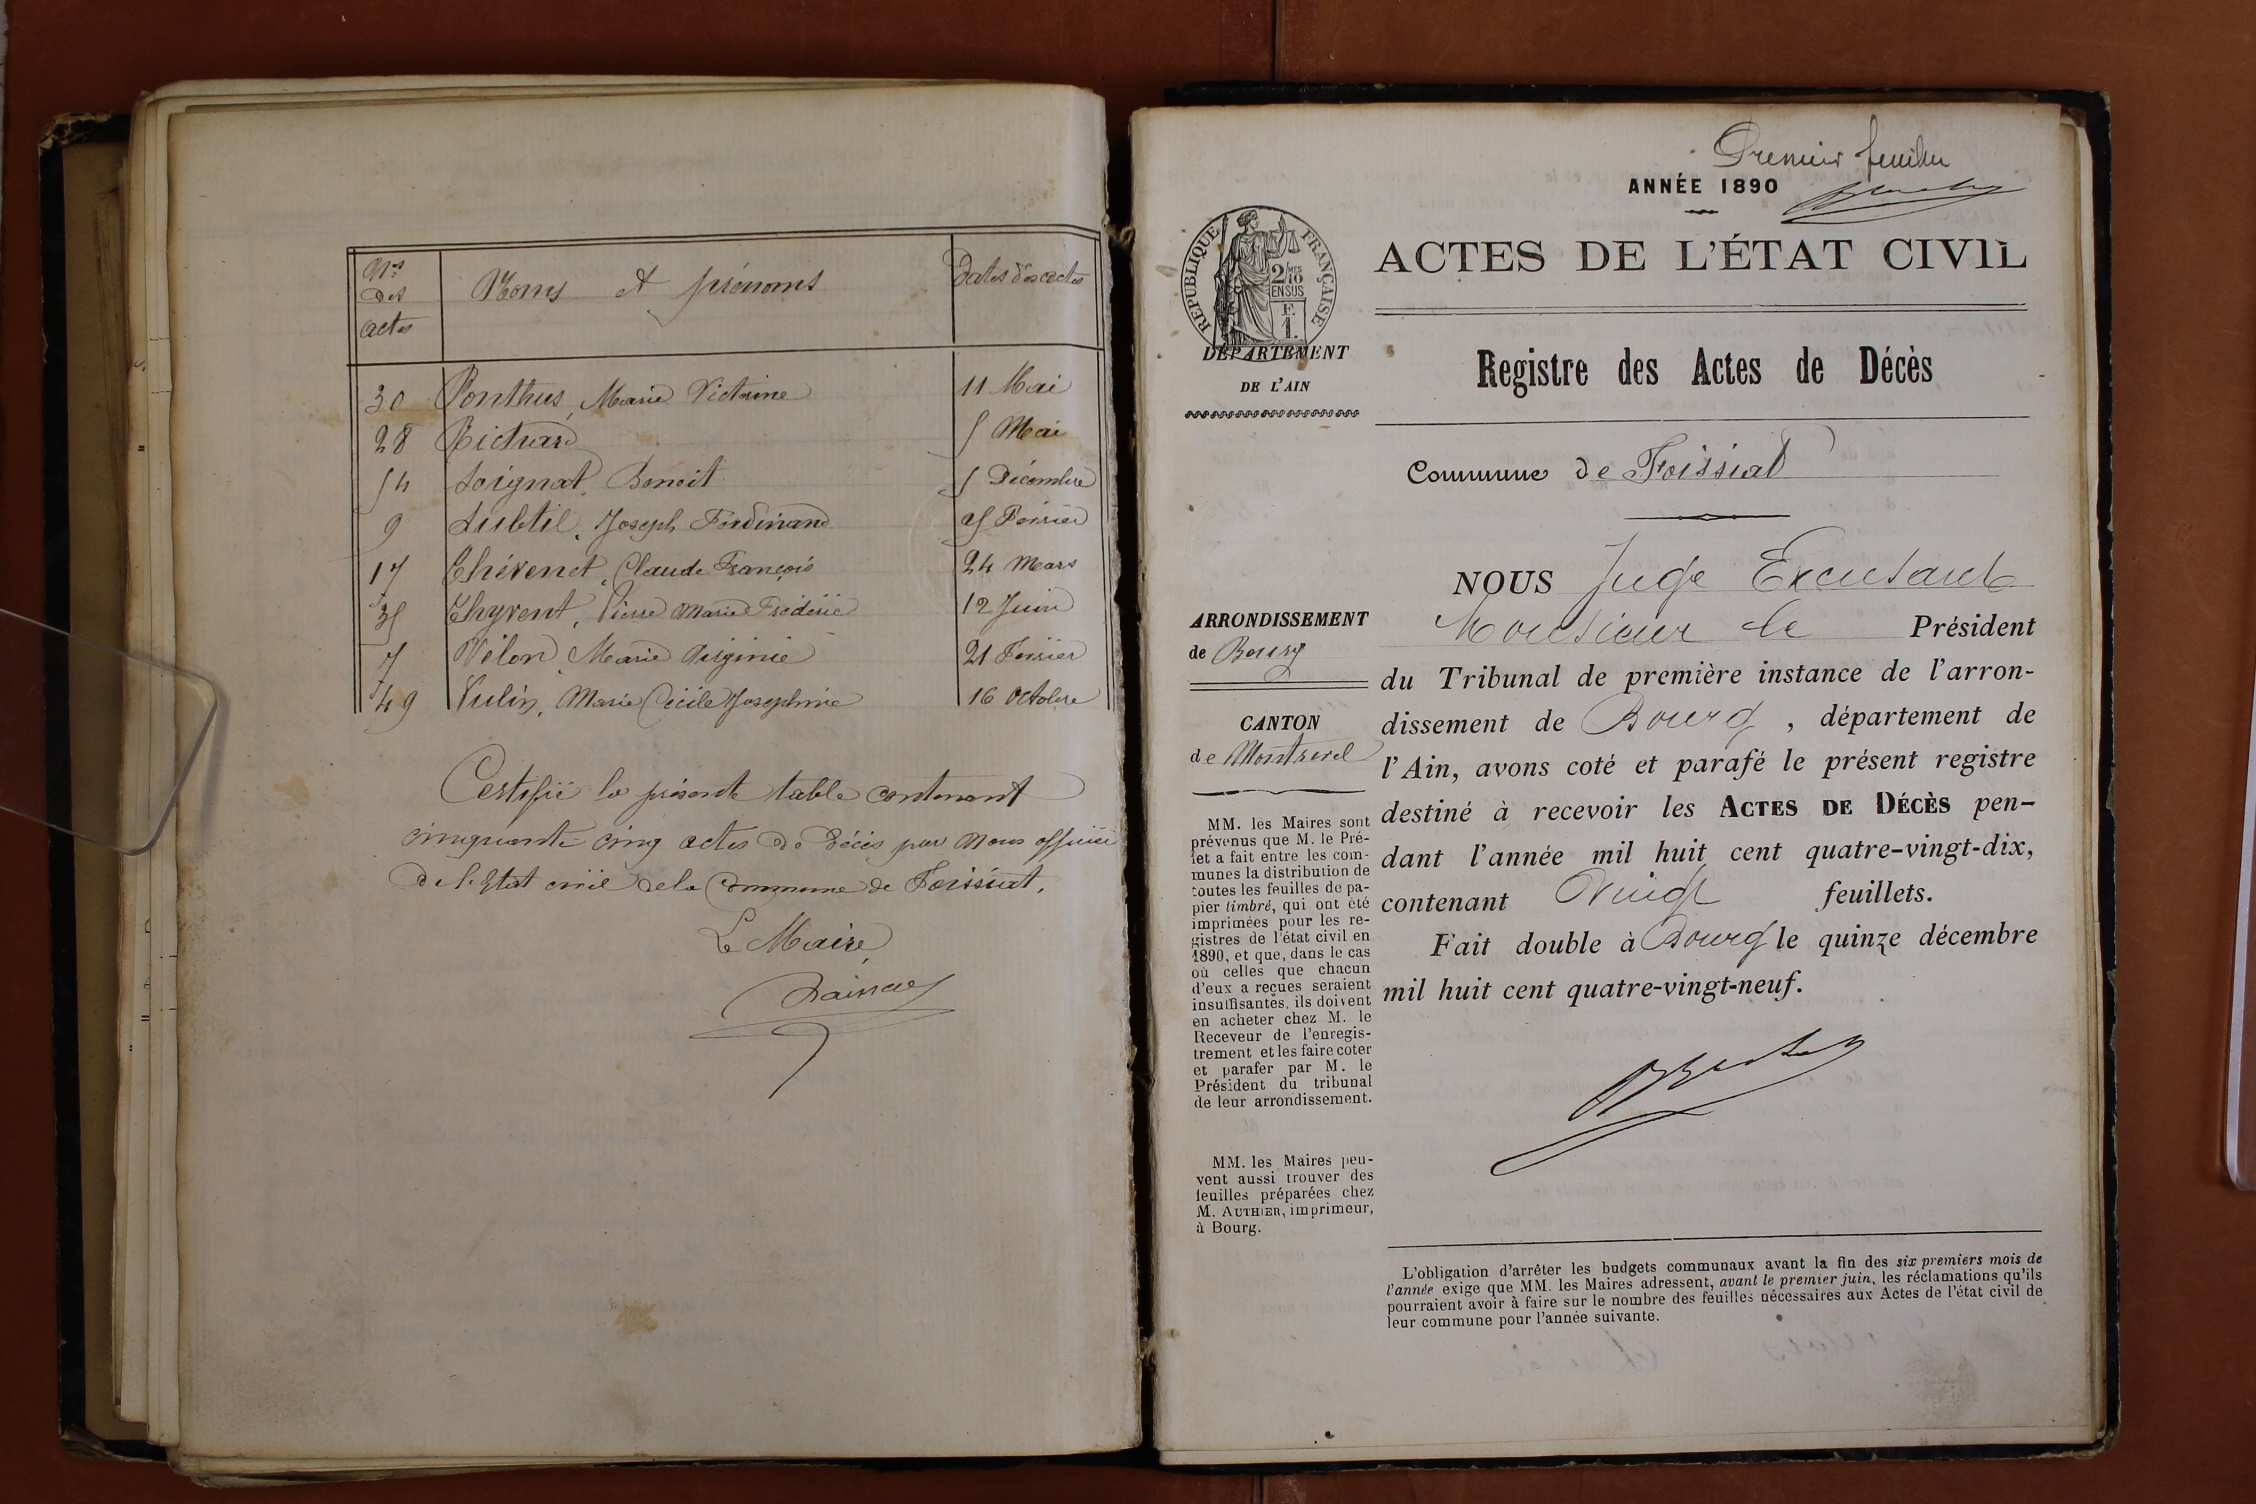 Nos des actes | Noms et prénoms | Dates des actes
30 Ponthus, Marie Victorine 11 Mai
28 Richard 5 Mai
54 Soignat, Benoit 5 Décembre
9 Subtil, Joseph Ferdinand 25 Février
17 Thévenet, Claude François 24 Mars
35 Thyvent, Pierre Marie Frédéric 12 Juin
7 Vélon, Marie Virginie 21 Février
49 Vulin, Marie Cécile Joséphine 16 Octobre
Certifié la présente table contenant
cinquante cinq actes de décès par nous officier
de l'Etat civil de la Commune de Foissiat.
Le Maire,
Premier feuillet
ANNÉE 1890
RÉPUBLIQUE FRANÇAISE
2/10 MES
EN SUS
F.
1.
ACTES DE L'ÉTAT CIVIL
DÉPARTEMENT
DE L'AIN
Registre des Actes de Décès
Commune de Foissiat
ARRONDISSEMENT
de Bourg
CANTON
de Montrevel
MM. les Maires sont
prévenus que M. le Pré-
fet a fait entre les com-
munes la distribution de
toutes les feuilles de pa-
pier timbré, qui ont été
imprimées pour les re-
gistres de l'état civil en
1890, et que, dans le cas
où celles que chacun
d'eux a reçues seraient
insuffisantes, ils doivent
en acheter chez M. le
Receveur de l'enregis-
trement et les faire coter
et parafer par M. le
Président du tribunal
de leur arrondissement.
MM. les Maires peu-
vent aussi trouver des
feuilles préparées chez
M. AUTHIER, imprimeur,
à Bourg.
NOUS Juge Excusant
Monsieur le Président
du Tribunal de première instance de l'arron-
dissement de Bourg, département de
l'Ain, avons coté et parafé le présent registre
destiné à recevoir les ACTES DE DÉCÈS pen-
dant l'année mil huit cent quatre-vingt-dix,
contenant Vingt feuillets.
Fait double à Bourg le quinze décembre
mil huit cent quatre-vingt-neuf.
L'obligation d'arrêter les budgets communaux avant la fin des six premiers mois de
l'année exige que MM. les Maires adressent, avant le premier juin, les réclamations qu'ils
pourraient avoir à faire sur le nombre des feuilles nécessaires aux Actes de l'état civil de
leur commune pour l'année suivante.